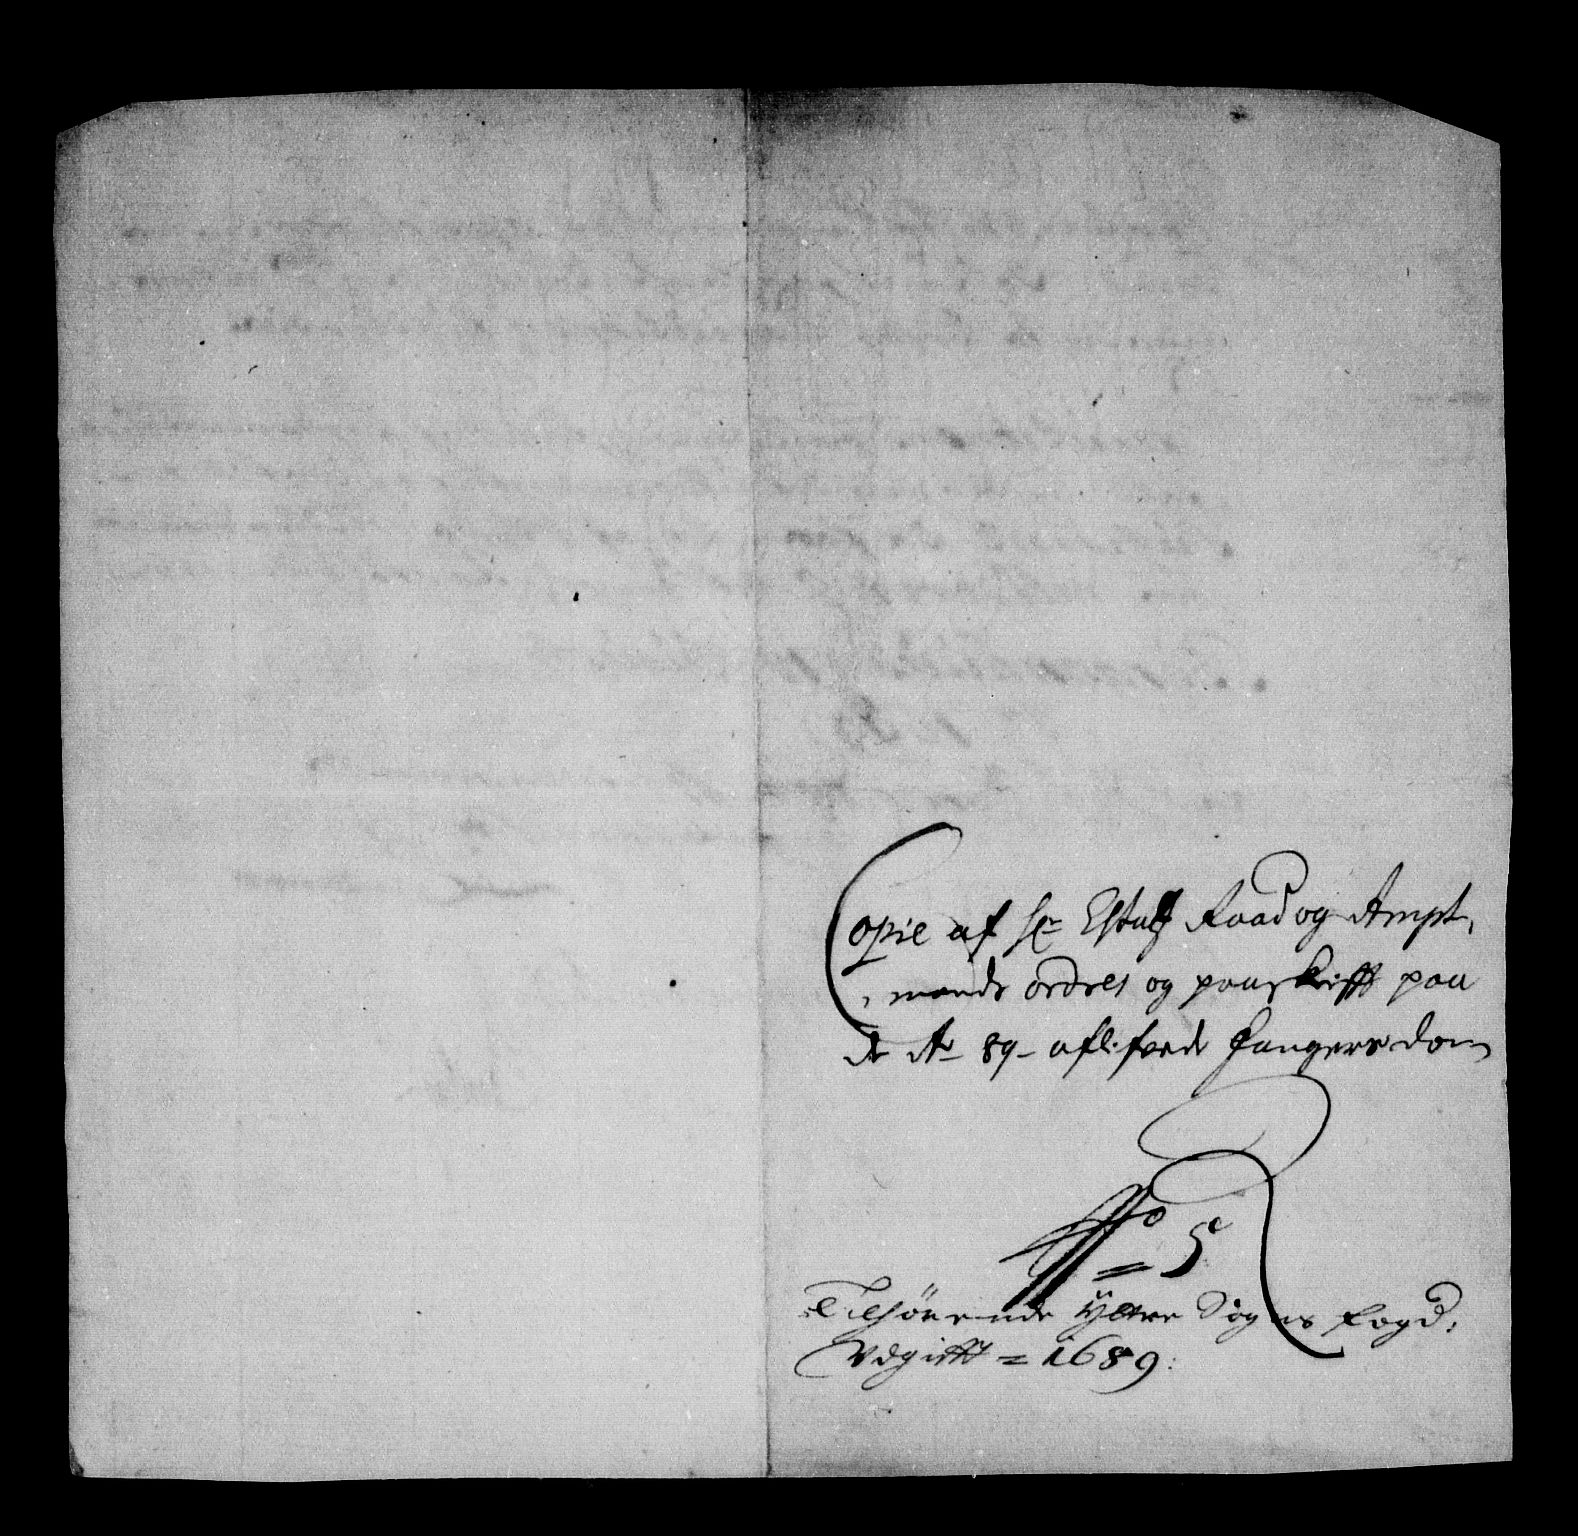 Copie af Hr Estatz Raad og Ampt,
, mands ordres og paaskrifft paa
de Ao 89 aflifvede Fangers dom
No = 5
Tilhörende Yttre Sogns Fogd:
Udgifft = 1689: